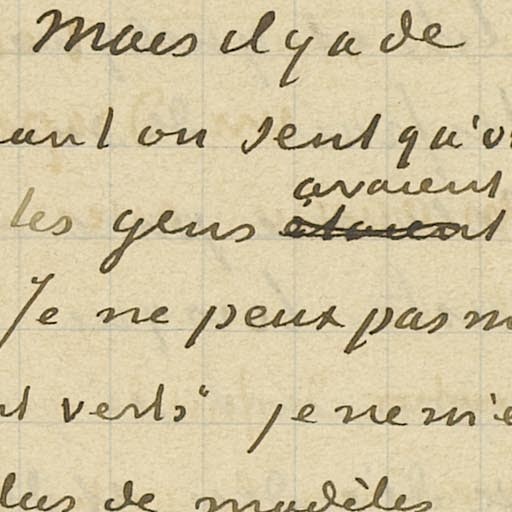 Mais il y a de
ant on sent qu'o
avaient
les gens étaient
Je ne peux pas m
nt verts" je ne m'e
lus de modèles